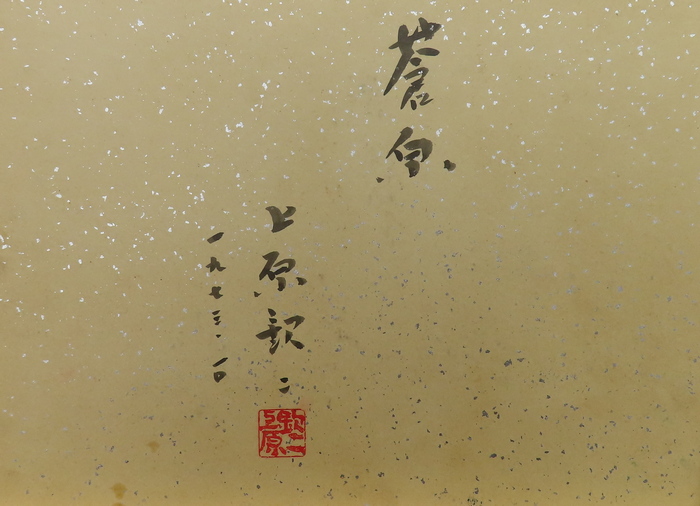 蒼
上原欽二
一九七三.一〇
欽二
上原